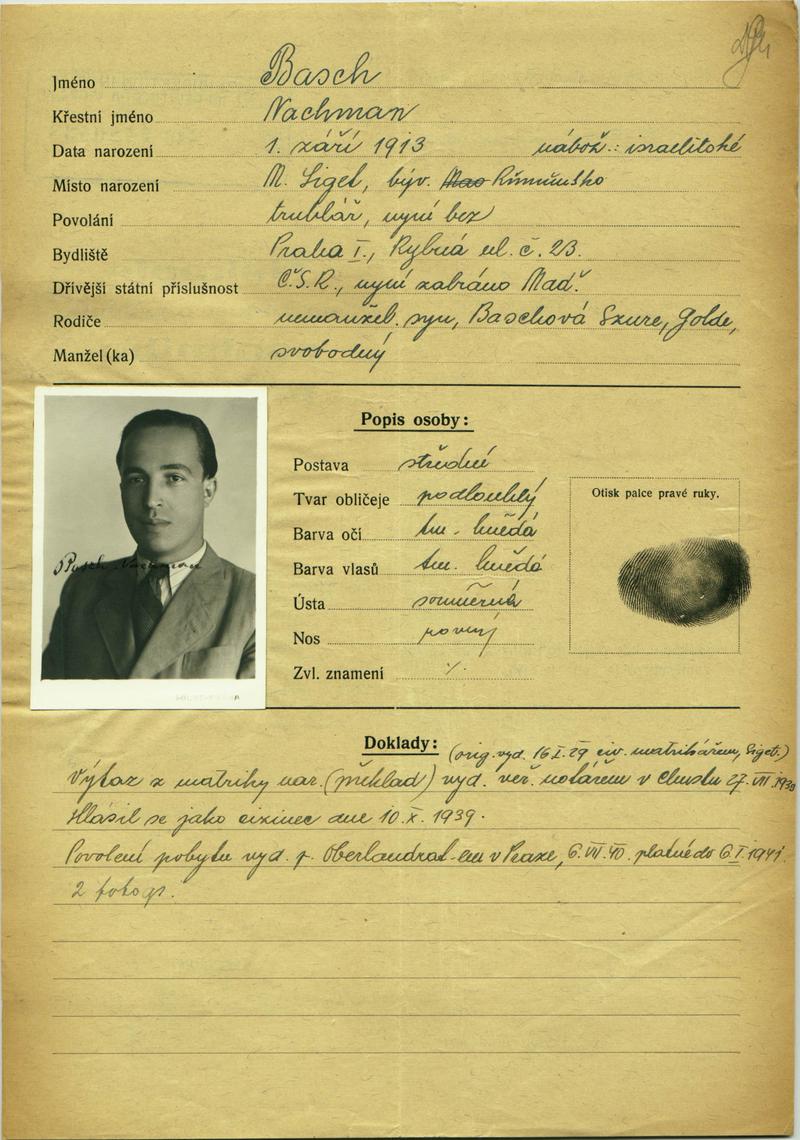 Jméno Basch
Křestní jméno Nachman
Data narození 1. září 1913 nábož.: israelitské
Místo narození M. Siget, býv. Rumunsko
Povolání truhlář, nyní bez
Bydliště Praha I., Rybná ul. č. 23.
Dřívější státní příslušnost Č.S.R., nyní zabráno Maď.
Rodiče nemanžel. syn, Baschová Szure, Golde,
Manžel(ka) svobodný
Popis osoby:
Postava střední
Tvar obličeje podlouhlý
Barva očí tm. hnědá
Barva vlasů tm. hnědá
Ústa souměrná
Nos rovný
Zvl. znamení ./.
Otisk palce pravé ruky.
Basch Nachman
Doklady:
(orig. vyd. 16.I.29 civ. matrikářem, Siget.)
Výtaz z matriky nar. (překlad) vyd. veř. notářem v Chustu 27.VII.1930
Hlásil se jako cizinec dne 10.X.1939.
Povolení pobytu vyd. p. Oberlandrat-em v Praze, 6.VII.40. platné do 6.I.1941.
2 fotogr.